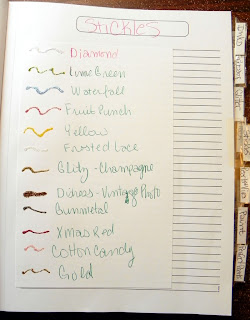 Stickles
Diamond
Lime Green
Waterfall
Fruit Punch
Yellow
Frosted Lace
Glitz - Champagne
Distress - Vintage Photo
Gunmetal
Xmas Red
Cotton Candy
Gold